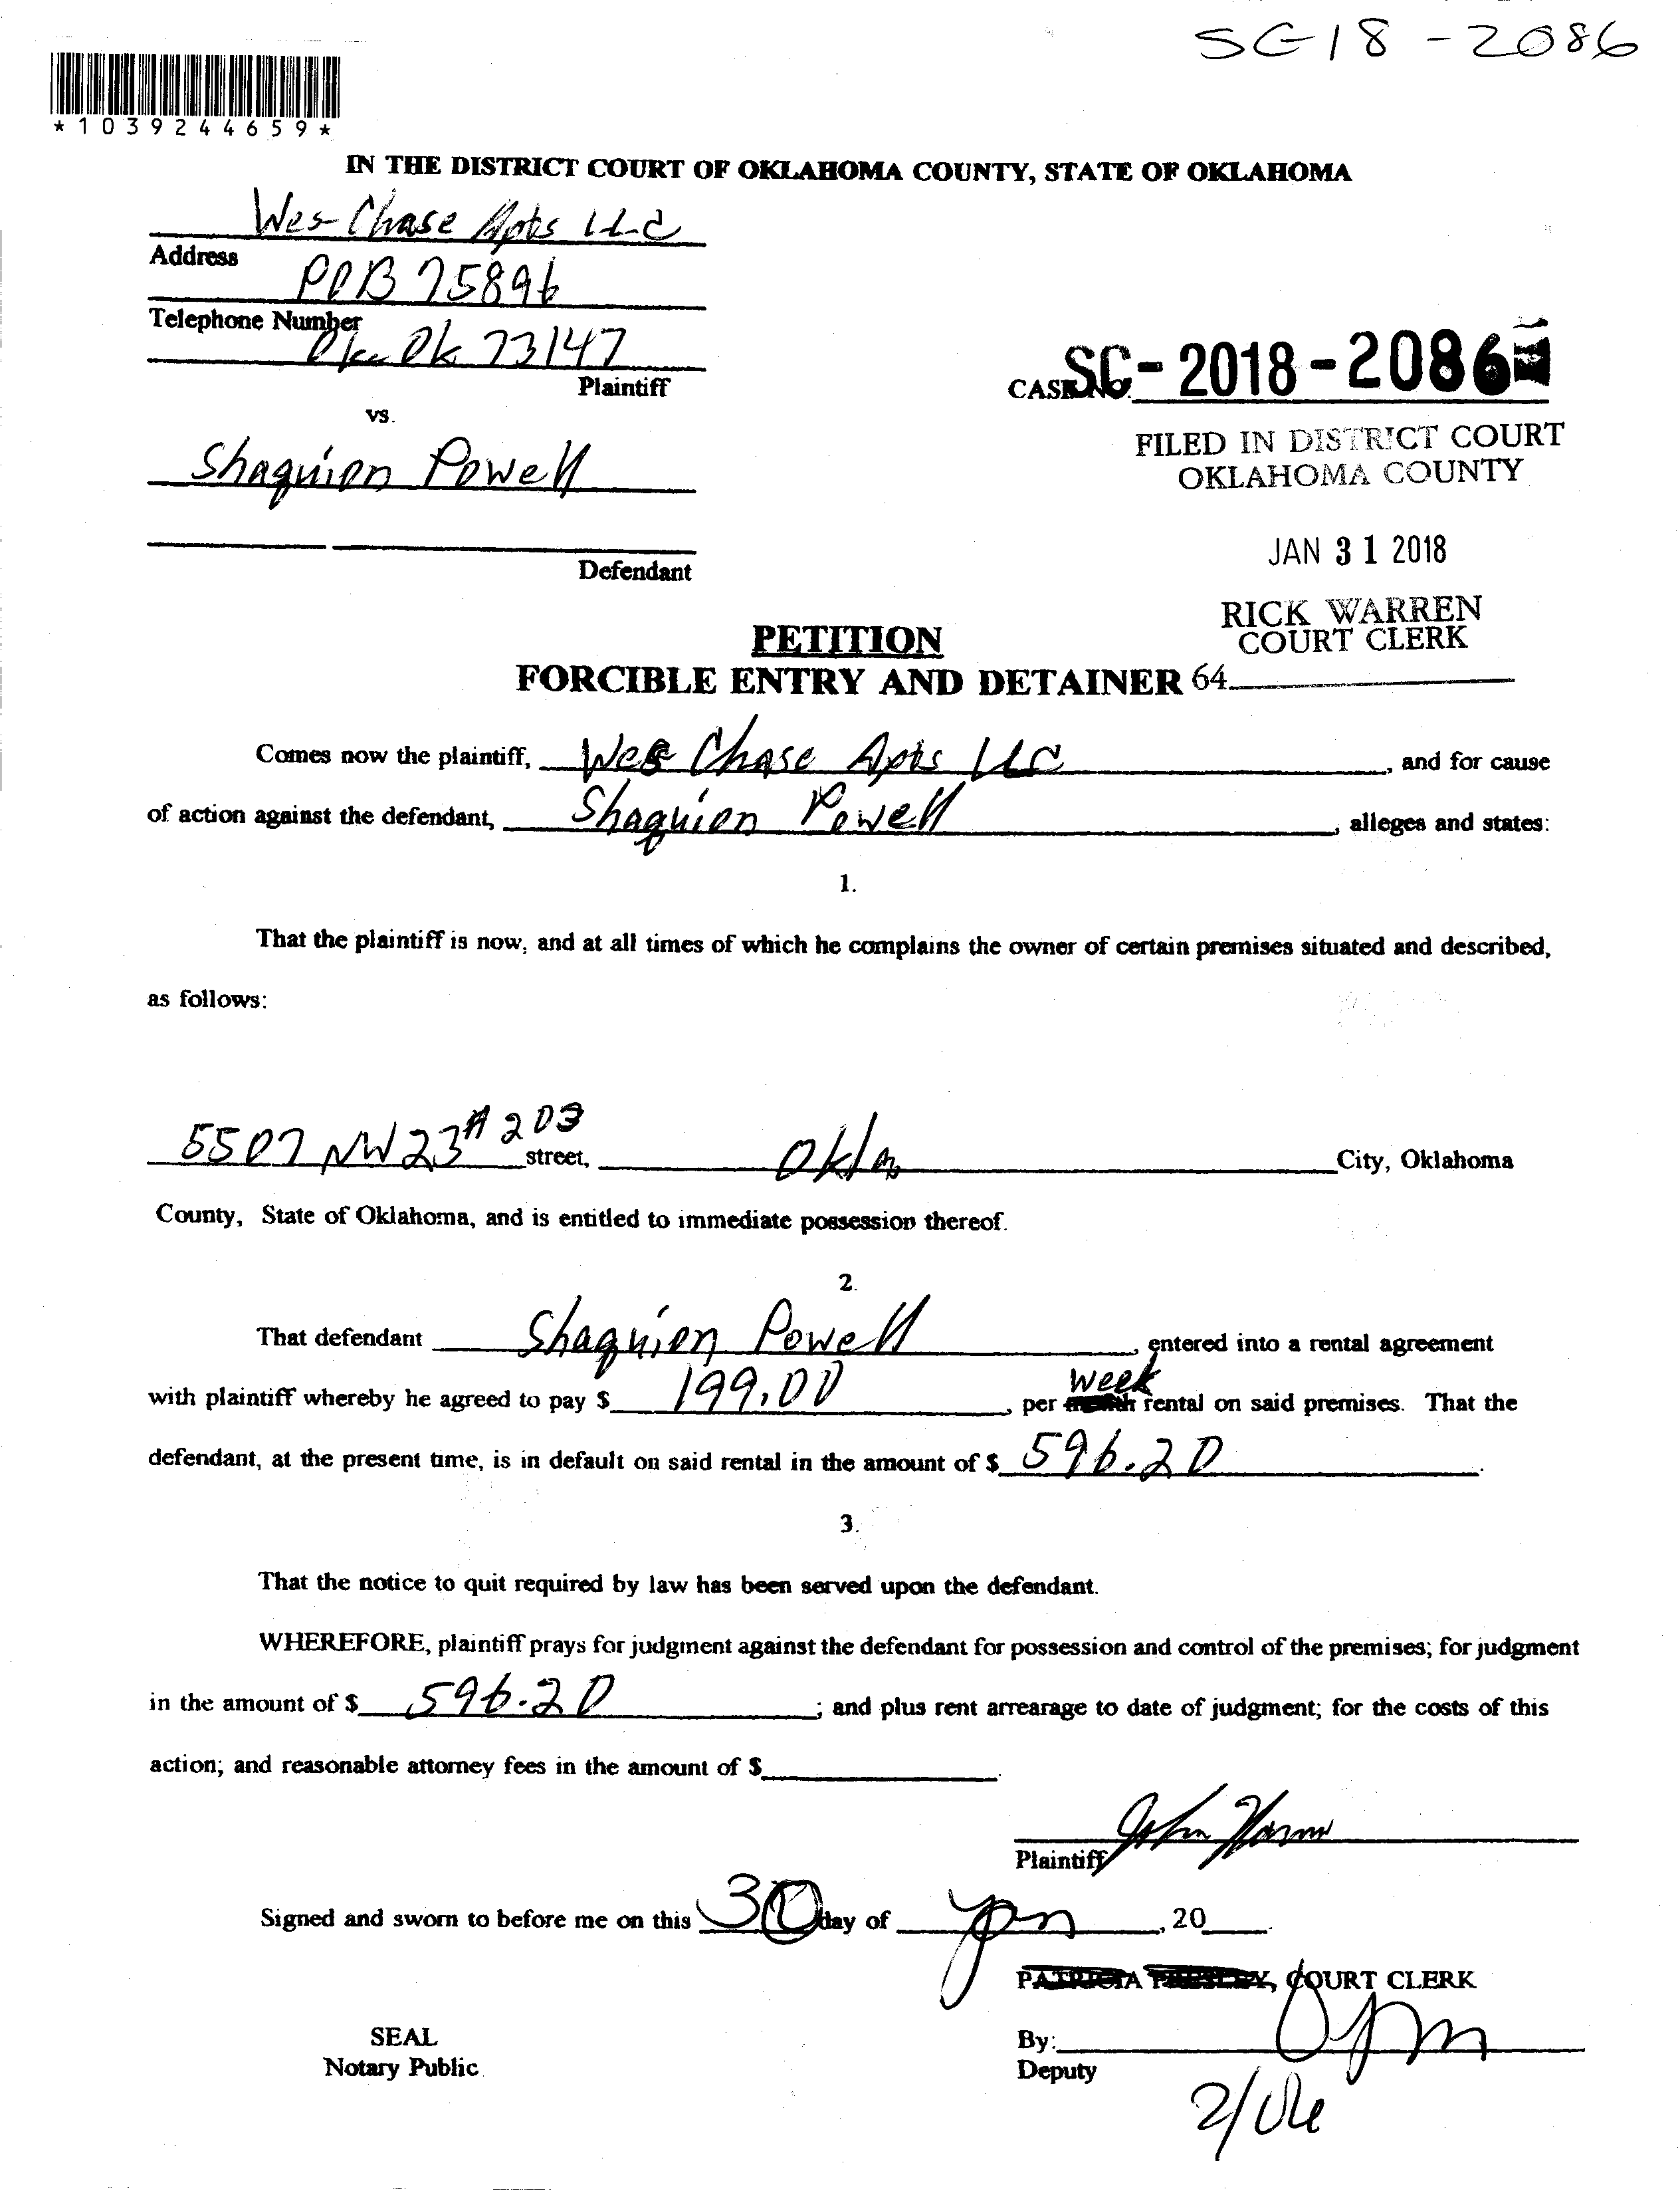 SC-18-2086
*1039244659*
IN THE DISTRICT COURT OF OKLAHOMA COUNTY, STATE OF OKLAHOMA
Wes Chase Apts LLC
Address
POB 75896
Telephone Number
Okc Ok 73147
Plaintiff
CASE NO. SC-2018-2086
vs.
FILED IN DISTRICT COURT
OKLAHOMA COUNTY
Shaquion Powell
JAN 31 2018
Defendant
RICK WARREN
COURT CLERK
PETITION
FORCIBLE ENTRY AND DETAINER 64
Comes now the plaintiff, Wes Chase Apts LLC, and for cause
of action against the defendant, Shaquion Powell, alleges and states:
1.
That the plaintiff is now, and at all times of which he complains the owner of certain premises situated and described,
as follows:
5507 NW 23 # 203 street, Okla City, Oklahoma
County, State of Oklahoma, and is entitled to immediate possession thereof.
2.
That defendant Shaquion Powell, entered into a rental agreement
with plaintiff whereby he agreed to pay $ 199.00, per week rental on said premises. That the
defendant, at the present time, is in default on said rental in the amount of $ 596.20.
3.
That the notice to quit required by law has been served upon the defendant.
WHEREFORE, plaintiff prays for judgment against the defendant for possession and control of the premises; for judgment
in the amount of $ 596.20; and plus rent arrearage to date of judgment; for the costs of this
action; and reasonable attorney fees in the amount of $
John
Plaintiff
Signed and sworn to before me on this 30 day of Jan, 20
PATRICIA PRESLEY, COURT CLERK
SEAL
Notary Public
By:
Deputy